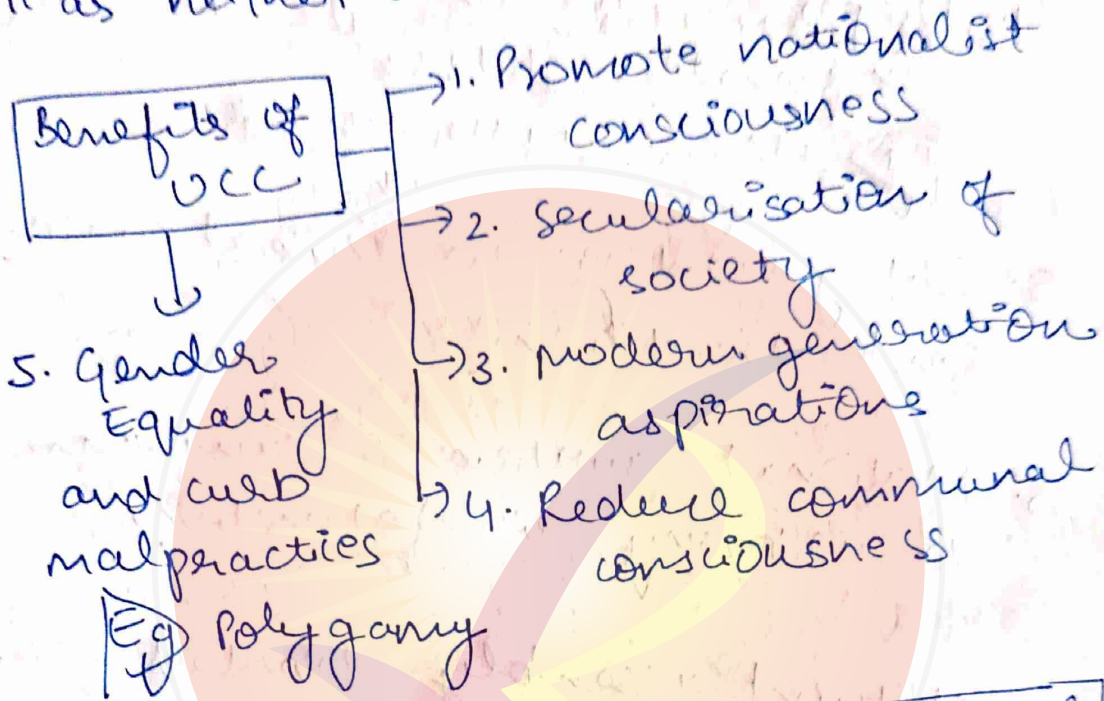 as
Benefits of
UCC
→1. Promote nationalist
consciousness
→2. Secularisation of
society
→3. modern generation
aspirations
→4. Reduce communal
consciousness
5. Gender
Equality
and curb
malpracties
Eg Polygamy